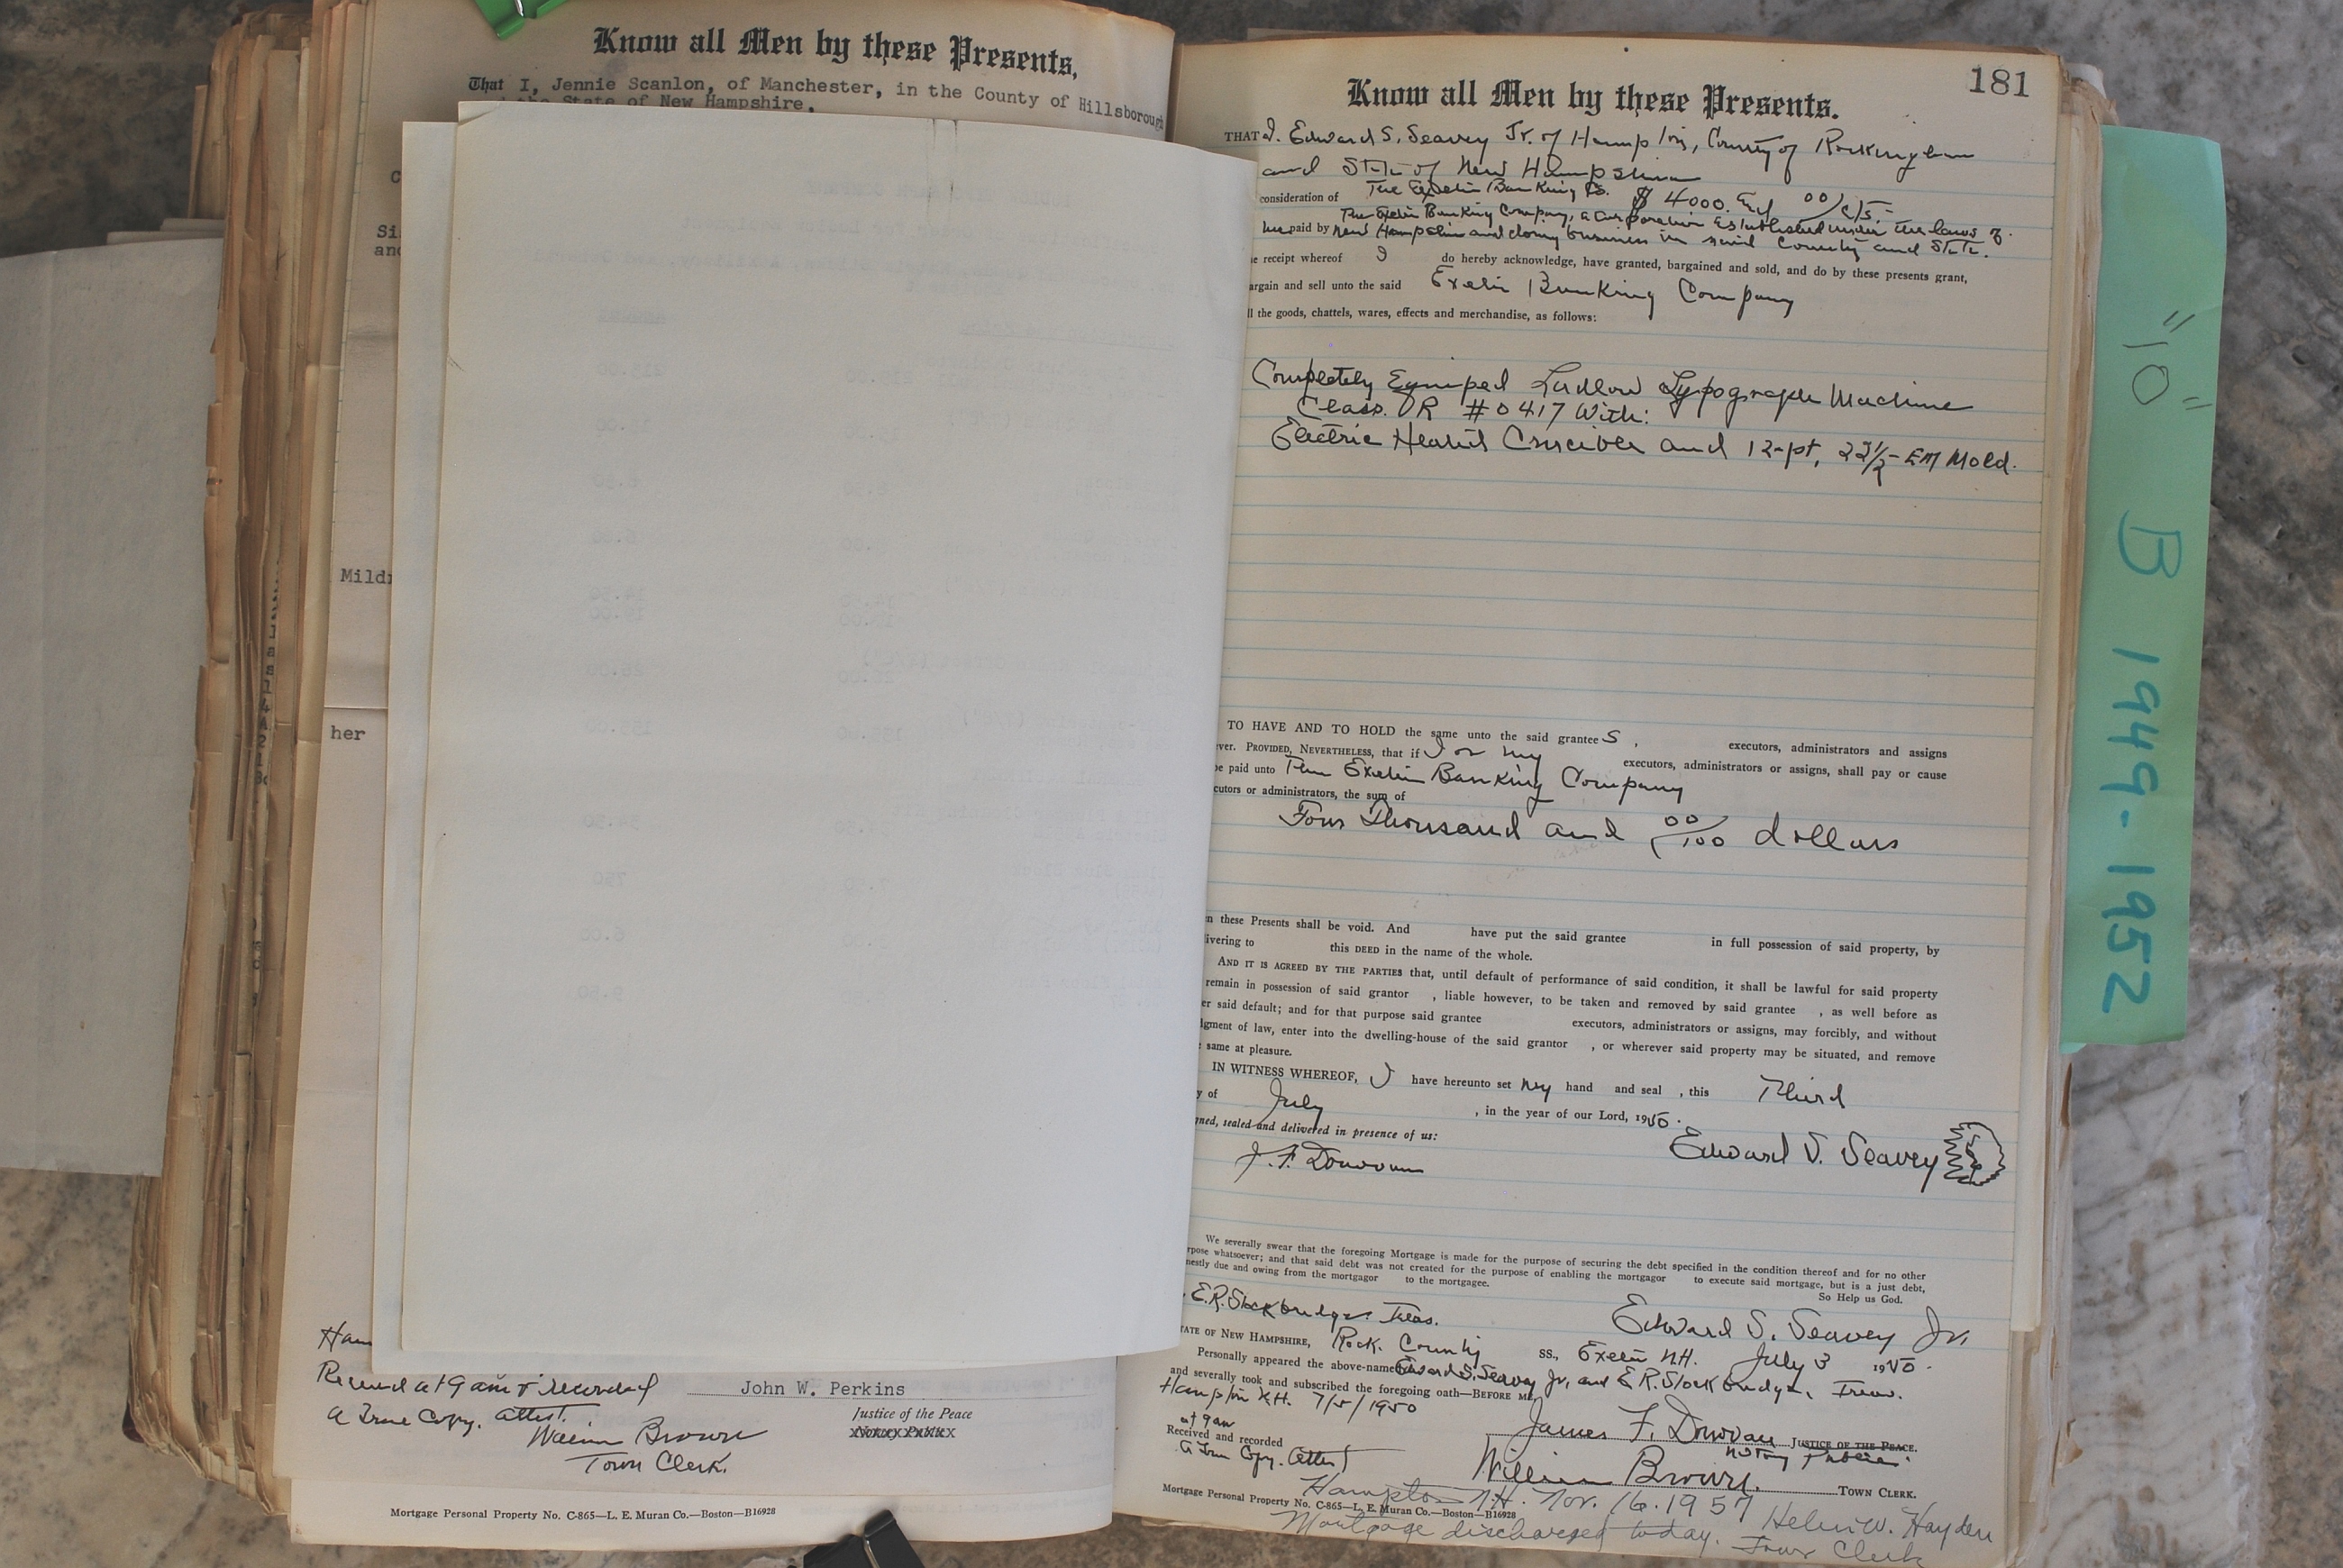 Know all Men by these Presents,
That I, Jennie Scanlon, of Manchester, in the County of Hillsborough
the State of New Hampshire,
Mild
her
Received at 9 am & recorded
A True Copy. Attest.
William Brown
Town Clerk.
John W. Perkins
Justice of the Peace
Mortgage Personal Property No. C-865—L. E. Muran Co.—Boston—B16928
181
Know all Men by these Presents.
THAT I. Edward S. Seavey Jr. of Hampton, County of Rockingham
and State of New Hampshire
consideration of The Exeter Banking Co. $4000. and 00/cts.
me paid by The Exeter Banking Company, a Corporation Established under the laws of
New Hampshire and doing business in said County and State.
e receipt whereof I do hereby acknowledge, have granted, bargained and sold, and do by these presents grant,
argain and sell unto the said Exeter Banking Company
ll the goods, chattels, wares, effects and merchandise, as follows:
Completely Equiped Ludlow Typograph Machine
Class. OR #0417 With:
Electric Heated Crucible and 12-pt, 22½-EM Mold.
TO HAVE AND TO HOLD the same unto the said grantee s, executors, administrators and assigns
ver. PROVIDED, NEVERTHELESS, that if I or my executors, administrators or assigns, shall pay or cause
be paid unto The Exeter Banking Company
cutors or administrators, the sum of
Four Thousand and 00/100 dollars
n these Presents shall be void. And have put the said grantee in full possession of said property, by
ivering to this DEED in the name of the whole.
AND IT IS AGREED BY THE PARTIES that, until default of performance of said condition, it shall be lawful for said property
remain in possession of said grantor , liable however, to be taken and removed by said grantee , as well before as
er said default; and for that purpose said grantee executors, administrators or assigns, may forcibly, and without
dgment of law, enter into the dwelling-house of the said grantor , or wherever said property may be situated, and remove
e same at pleasure.
IN WITNESS WHEREOF, I have hereunto set my hand and seal , this Third
y of July , in the year of our Lord, 1950.
gned, sealed and delivered in presence of us:
J. F. Donovan
Edward S. Seavey
We severally swear that the foregoing Mortgage is made for the purpose of securing the debt specified in the condition thereof and for no other
rpose whatsoever; and that said debt was not created for the purpose of enabling the mortgagor to execute said mortgage, but is a just debt,
nestly due and owing from the mortgagor to the mortgagee.
So Help us God.
E.R. Stockbridge Treas.
Edward S. Seavey Jr.
TATE OF NEW HAMPSHIRE, Rock. County SS., Exeter N.H. July 3 1950.
Personally appeared the above-named Edward S. Seavey Jr, and E.R. Stockbridge, Treas.
and severally took and subscribed the foregoing oath—BEFORE ME,
Hampton N.H. 7/5/1950
at 9 am
Received and recorded
A True Copy. Attest
James F. Donovan JUSTICE OF THE PEACE.
Notary Public.
William Brown. TOWN CLERK.
Mortgage Personal Property No. C-865—L. E. Muran Co.—Boston—B16928
Hampton N.H. Nov. 16. 1957 Helen W. Hayden
Mortgage discharged today. Town Clerk
"10" B 1949-1952